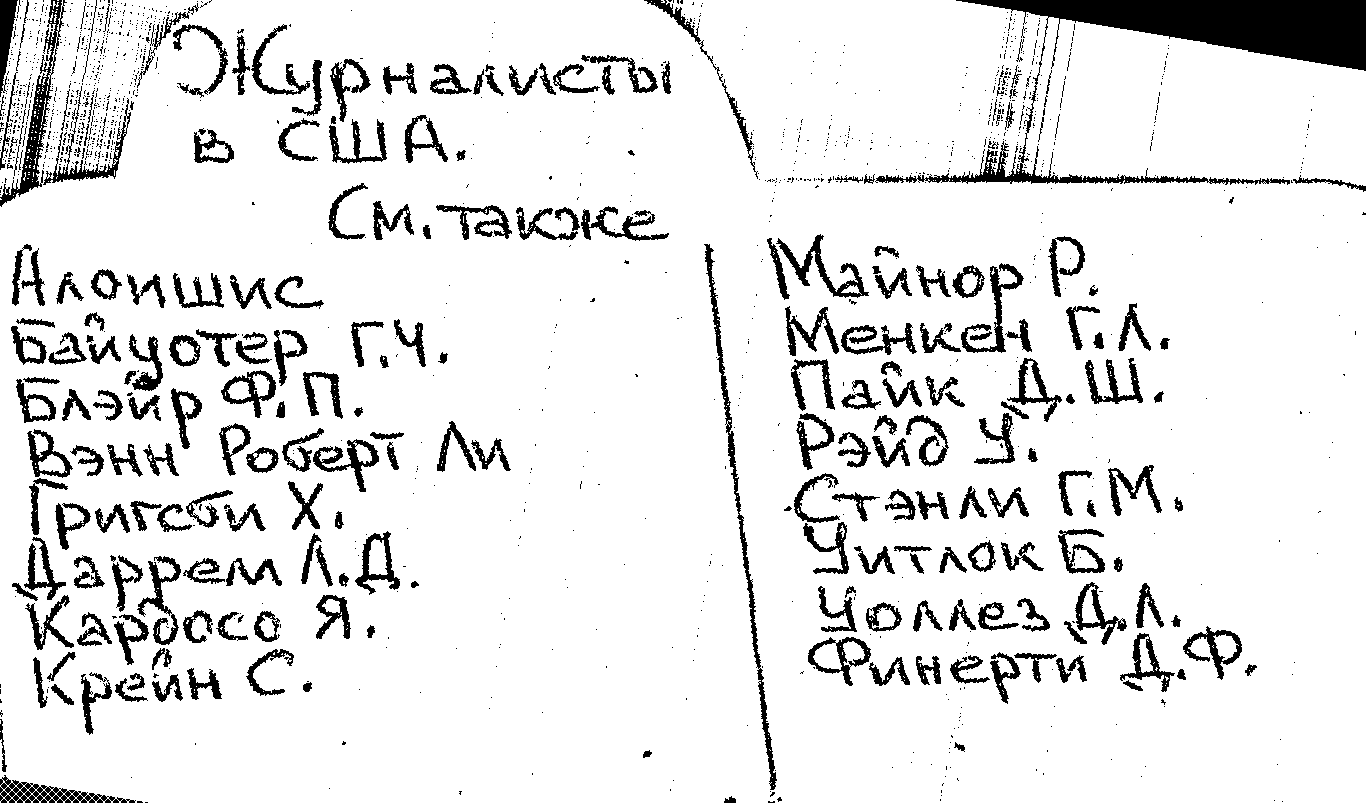 Журналисты
в США.
См. также
Алоишис
Байуотер Г.Ч.
Блэйр Ф.П.
Вэнн Роберт Ли
Григсби Х.
Даррем Л.Д.
Кардосо Я.
Крейн С.
Майнор Р.
Менкен Г.Л.
Пайк Д.Ш.
Рэйд У.
Стэнли Г.М.
Уитлок Б.
Уоллез Д.Л.
Финерти Д.Ф.